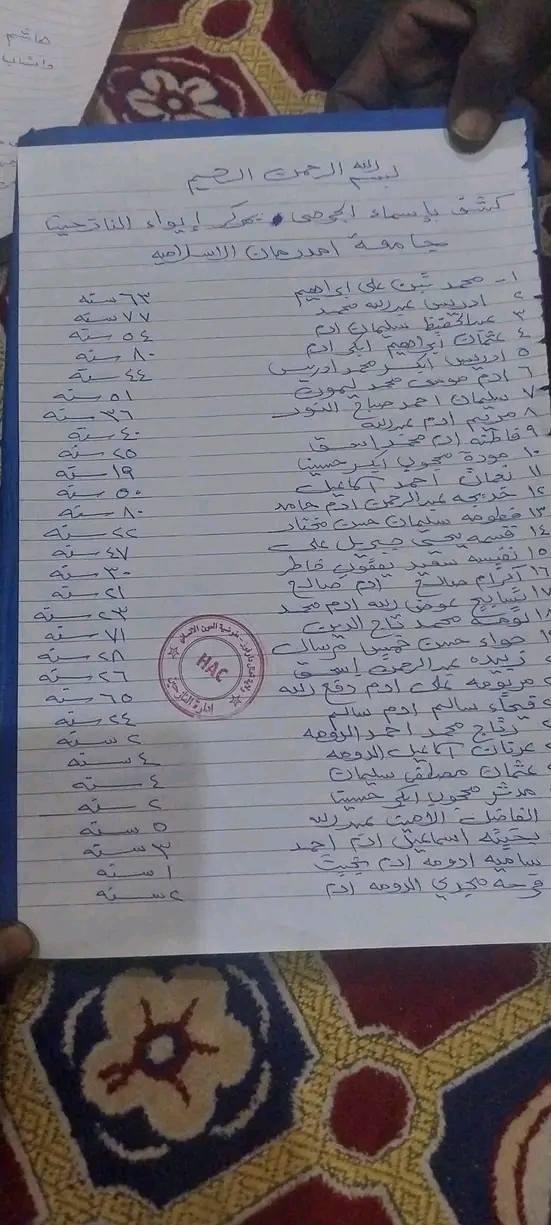 هاشم
بسم الله الرحمن الرحيم
كشف بإسماء المرضى بمركز إيواء النازحين
جامعة امدرمان الاسلامية
١- محمد شين على ابراهيم ٦٣ سنه
٢ ادريس عبدالله محمد ٧٧ سنه
٣ عبدالحفيظ سليمان ادم ٥٤ سنه
٤ عثمان ابراهيم ابكر ادم ٨٠ سنه
٥ ادريس ابكر محمد ادريس ٤٤ سنه
٦ ادم موسى محمد ليمون ٥١ سنه
٧ سليمان احمد صباح النور ٣٦ سنه
٨ مريم ادم عبدالله ٤٠ سنه
٩ فاطمه ادم محمد اسحق ٢٥ سنه
١٠ مودة محجوب ابكر حسين ١٩ سنه
١١ احمد اسماعيل ٥٠ سنه
١٢ خديجه عبدالرحمن ادم حامد ٨٠ سنه
١٣ فطومه سليمان حسن مختار ٢٢ سنه
١٤ قسمه يحى جبريل على ٤٧ سنه
١٥ نفيسه سعيد يعقوب خاطر ٣٠ سنه
١٦ اكرام صالح ادم صالح ٢١ سنه
١٧ تسابيح عوض الله ادم محمد ٢٣ سنه
١٨ محمد تاج الدين ٧١ سنه
١٩ حواء حسن خميس مرسال ٢٨ سنه
زبيده عبدالرحمن إسحق ٢٦ سنه
مريومه على ادم دفع الله ٦٥ سنه
سالم ادم سالم ٢٤ سنه
رتاج محمد احمد الدومه ٢ سنه
عرفات اسماعيل الدومه ٤ سنه
عثمان مصطفى سليمان ٤ سنه
مدثر محجوب ابكر حسين ٢ سنه
الفاضل الامين عبدالله ٥ سنه
بخيته اسماعيل ادم احمد ٣ سنه
ساميه ادومه ادم بخيت ١ سنه
فرحه مجدي الدومه ادم ٢ سنه
HAC
إدارة النازحين